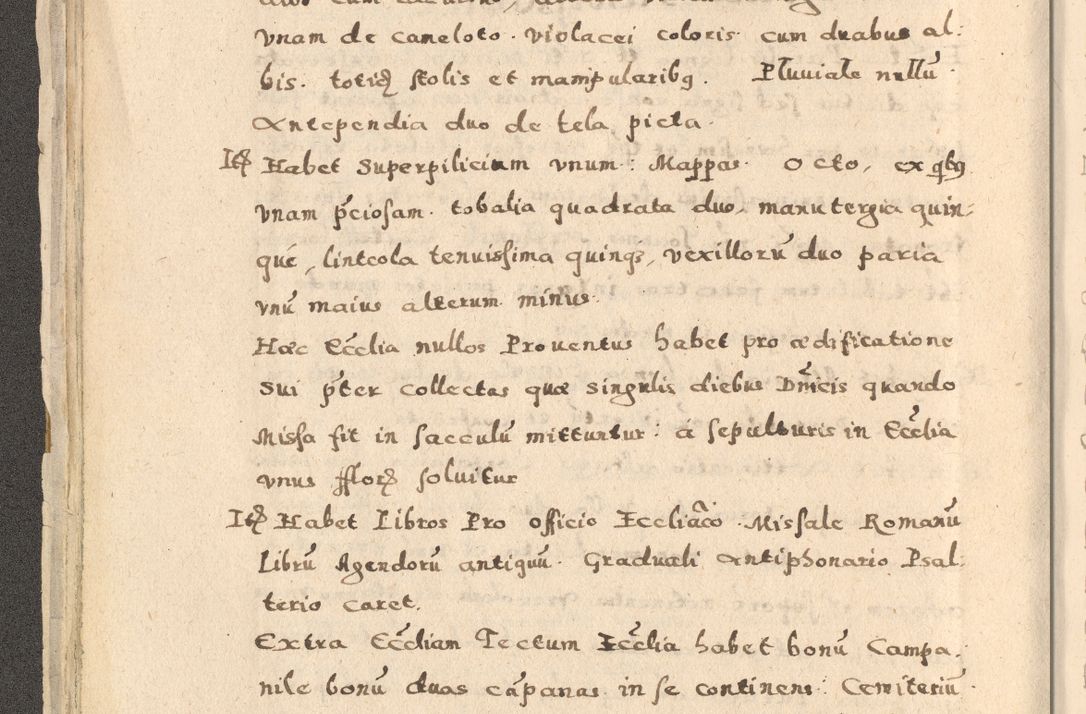 vnam de cameloto. violacei coloris cum duabus al:
bis. totidē stolis et mampularibȝ. Pluuiale nullū.
Antependia duo de tela picta.
Itē Habet Superpilicium vnum: Mappas octo, ex qbȝ
vnam p̄ciosam. tobalia quadrata duo, manutergia quin:
que, linteola tenuissima quinqȝ, vexillorū duo paria
vnū maius alterum minus.
Haec Eccl̄ia nullos Prouentus habet pro aedificatione
sui p̄ter collectas quae singulis diebus Dn̄icis quando
Missa fit in sacculū mittuntur: a sepulturis in Eccl̄ia
vnus fflorē soluitur
Itē Habet Libros Pro officio Eccliāco. Missale Romanū
Librū Agendorū antiquū. Graduali Antiphonario Psal:
terio caret.
Extra Eccl̄iam Tectum Eccl̄ia habet bonū Campa:
nile bonū duas cāpanas in se continens: Cemiteriū